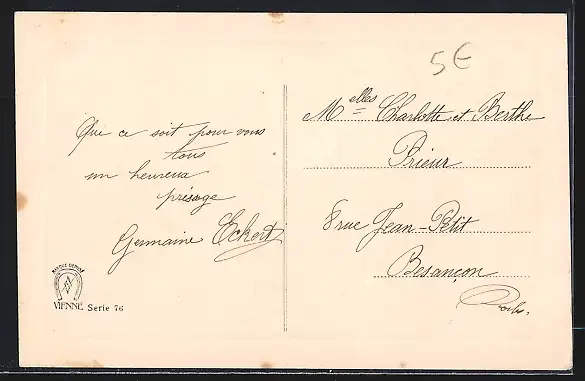 5€
Que ce soit pour vous
tous
un heureux
présage
Germaine Eckert
Melles Charlotte et Berthe
Prieur
8 rue Jean-Petit
Besançon
MARQUE DEPOSÉ
VIENNE Serie 76